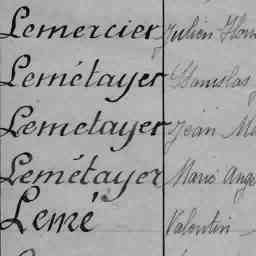 Lemercier Julien
Lemétayer Stanislas
Lemetayer Jean
Lemétayer Marie Ange
Lemé Valentin